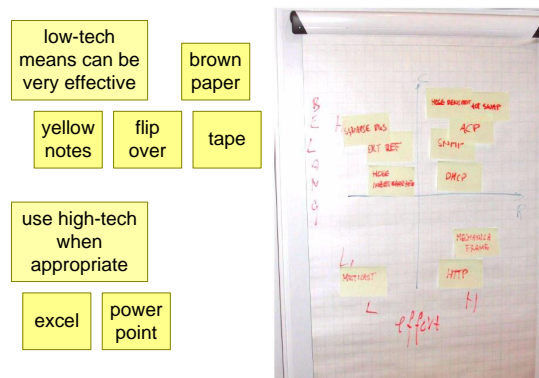 low-tech
means can be
very effective
brown
paper
yellow
notes
flip
over
tape
use high-tech
when
appropriate
excel
power
point
B
E
L
A
N
G
H
ACP
EXT REF
SNMP
DHCP
MECHANICA
FRAME
L
HTTP
L
H
effort